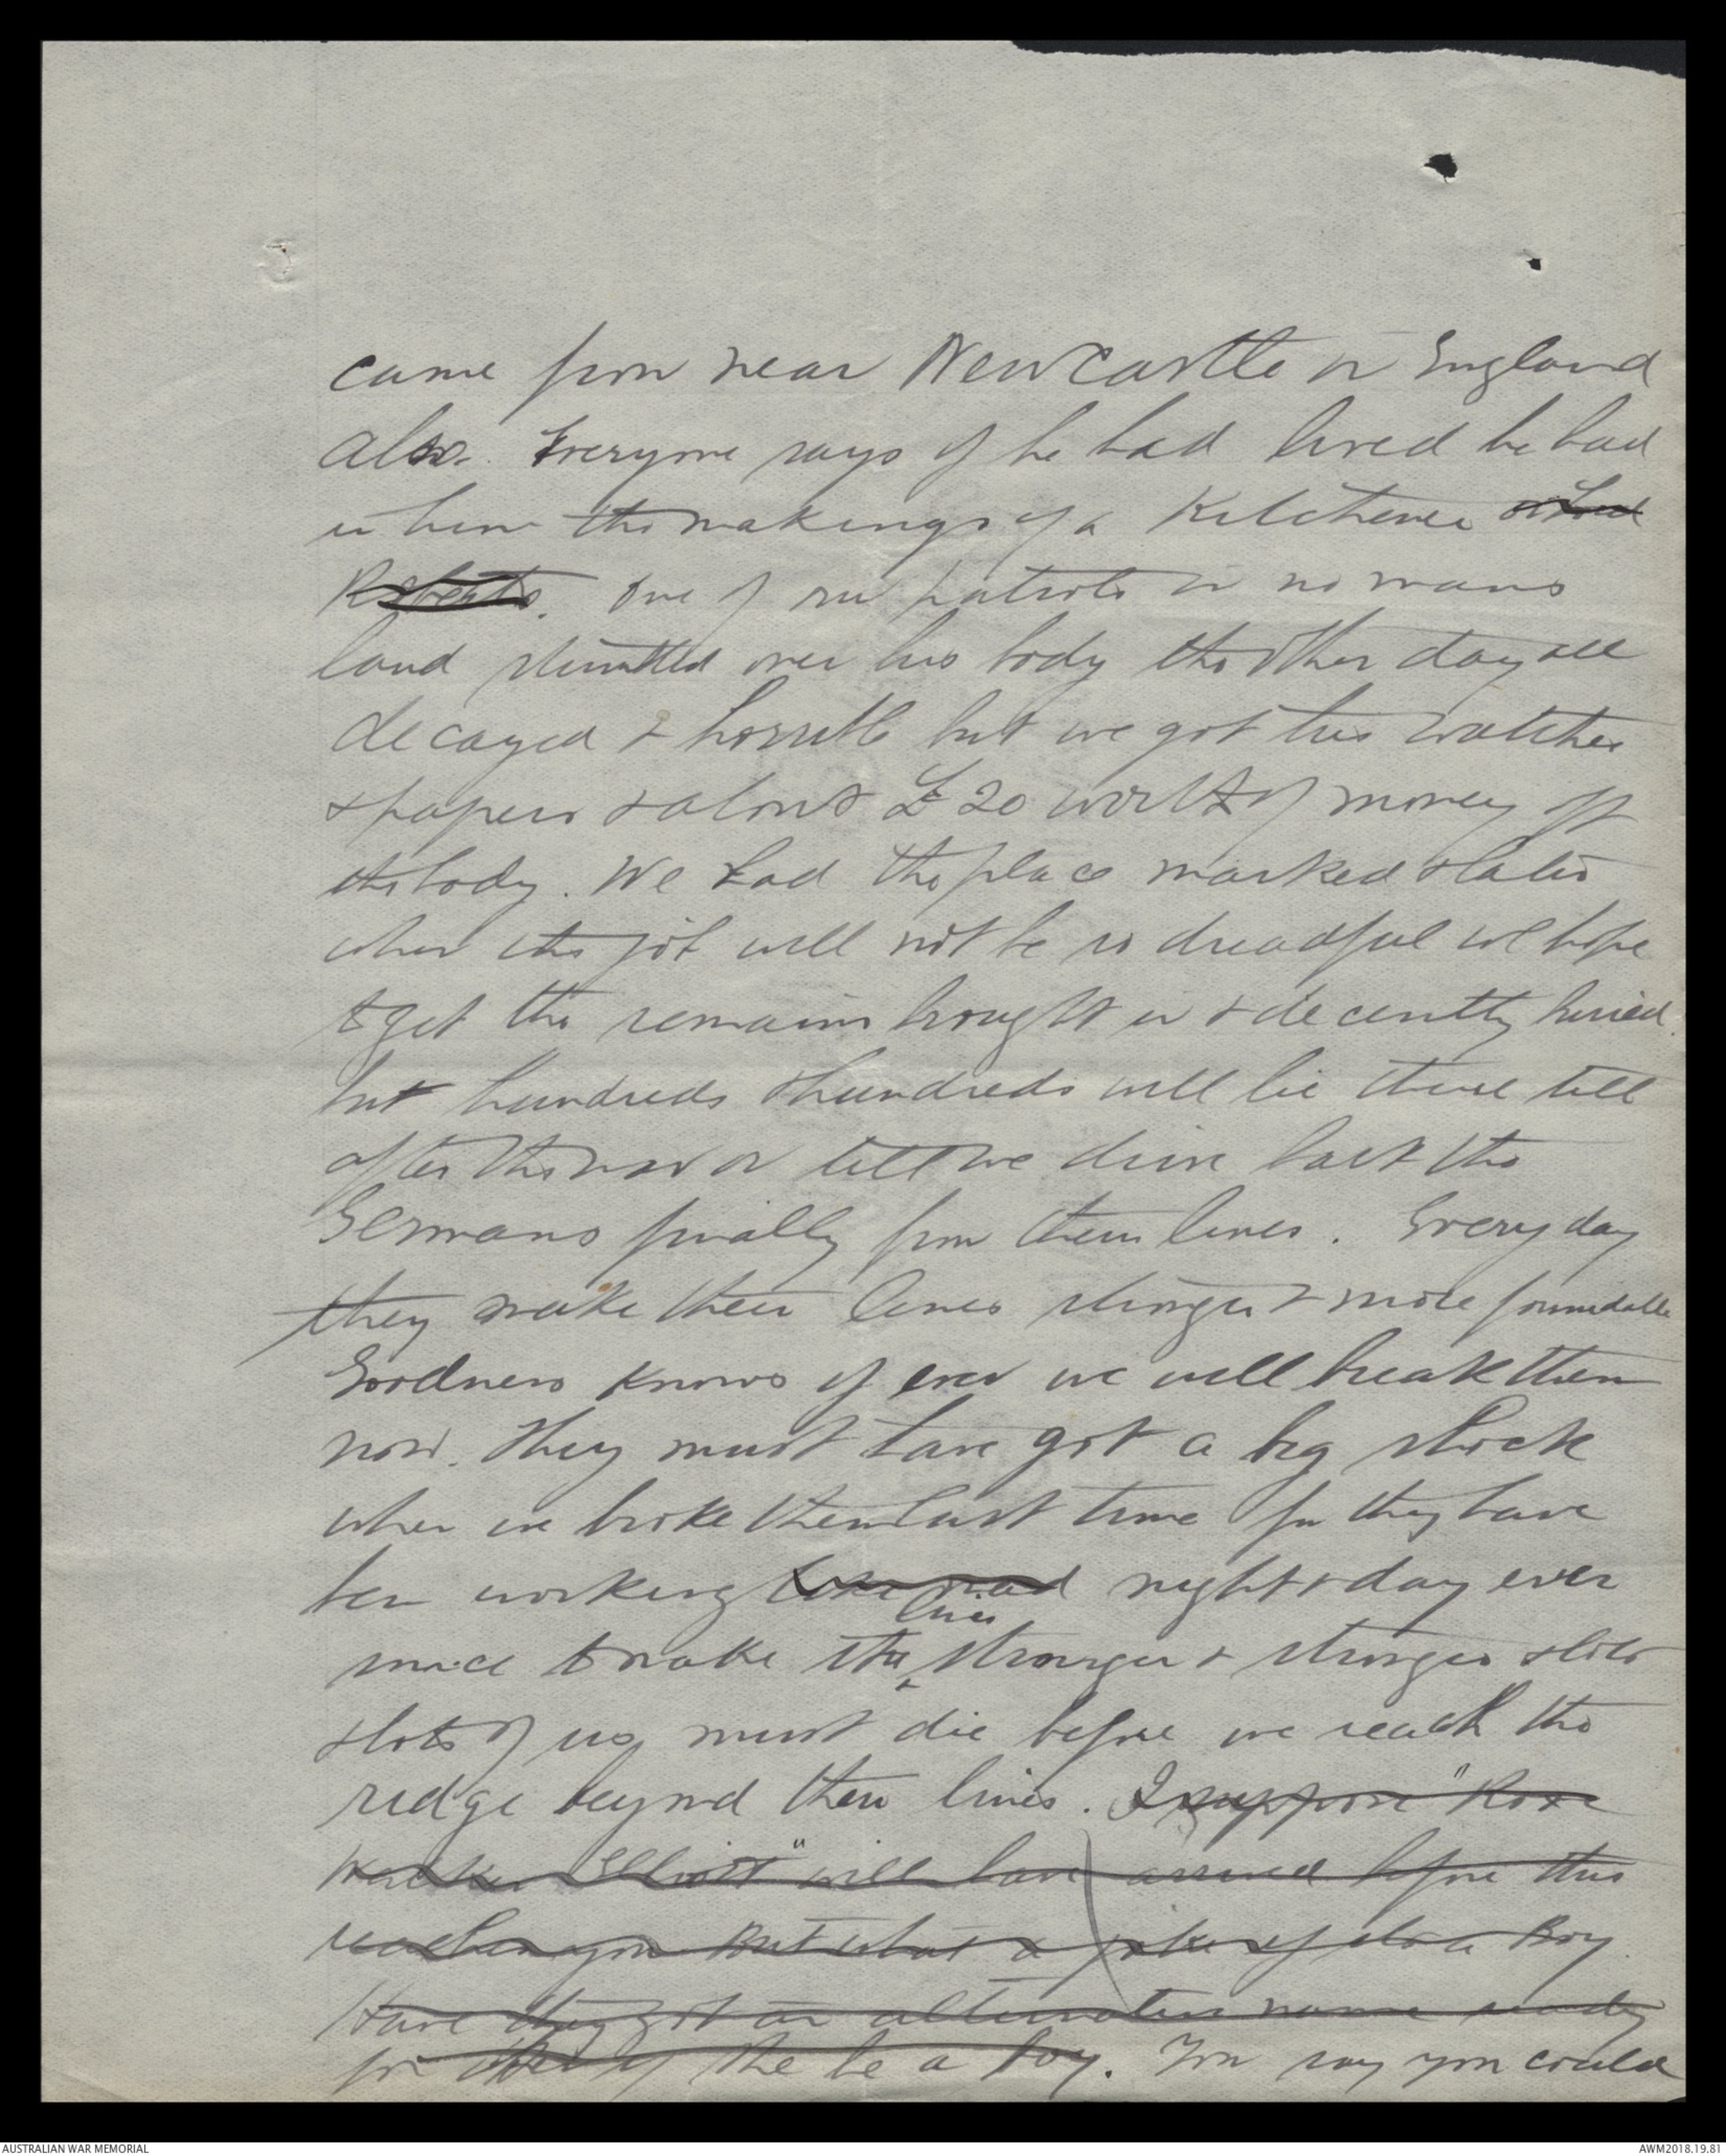 came from near Newcastle in England
also. Everyone says if he had lived he had
in him the makings of a Kitchener or Lord
Roberts. One of our patrols in no mans
land stumbled over his body the other day all
decayed & horrible but we got his watches
& papers & about £20 worth of money off
the body. We had the place marked & later
when the job will not be so dreadful we hope
to get the remains brought in & decently buried
but hundreds & hundreds will lie there till
after the war or till we drive back the
Germans finally from their lines. Every day
they make their lines stronger & more formidable
Goodness knows if ever we will break them
now. They must have got a big shock
when we broke them last time for they have
been working like mad night & day ever
since to make the lines stronger & stronger & lots
& lots of us must die before we reach the
ridge beyond their lines. I suppose "Rose
Walker Elliott" will have arrived before this
reaches you But what a joke if its a Boy.
Have they got an alternative name ready
for it if she be a boy. You say you could
AUSTRALIAN WAR MEMORIAL
AWM2018.19.81